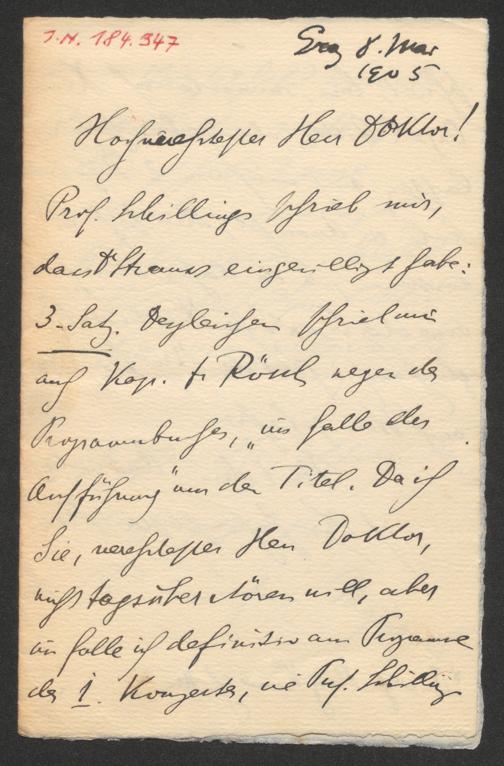 I.N. 184.347
Graz 8. Mai
1905
Hochverehrtester Herr Doktor!
Prof. Schillings schrieb mir,
dass Dr Strauss eingewilligt habe:
3. Satz. Desgleichen schrieb mir
auch Kap. Fr. Rösch wegen des
Programmbuches, „im Falle der
Aufführung" um den Titel. Da ich
Sie, verehrtester Herr Doktor,
nicht tagsüber stören will, aber
im Falle ich definitiv am Programme
des I. Konzertes, wie Prof. Schillings